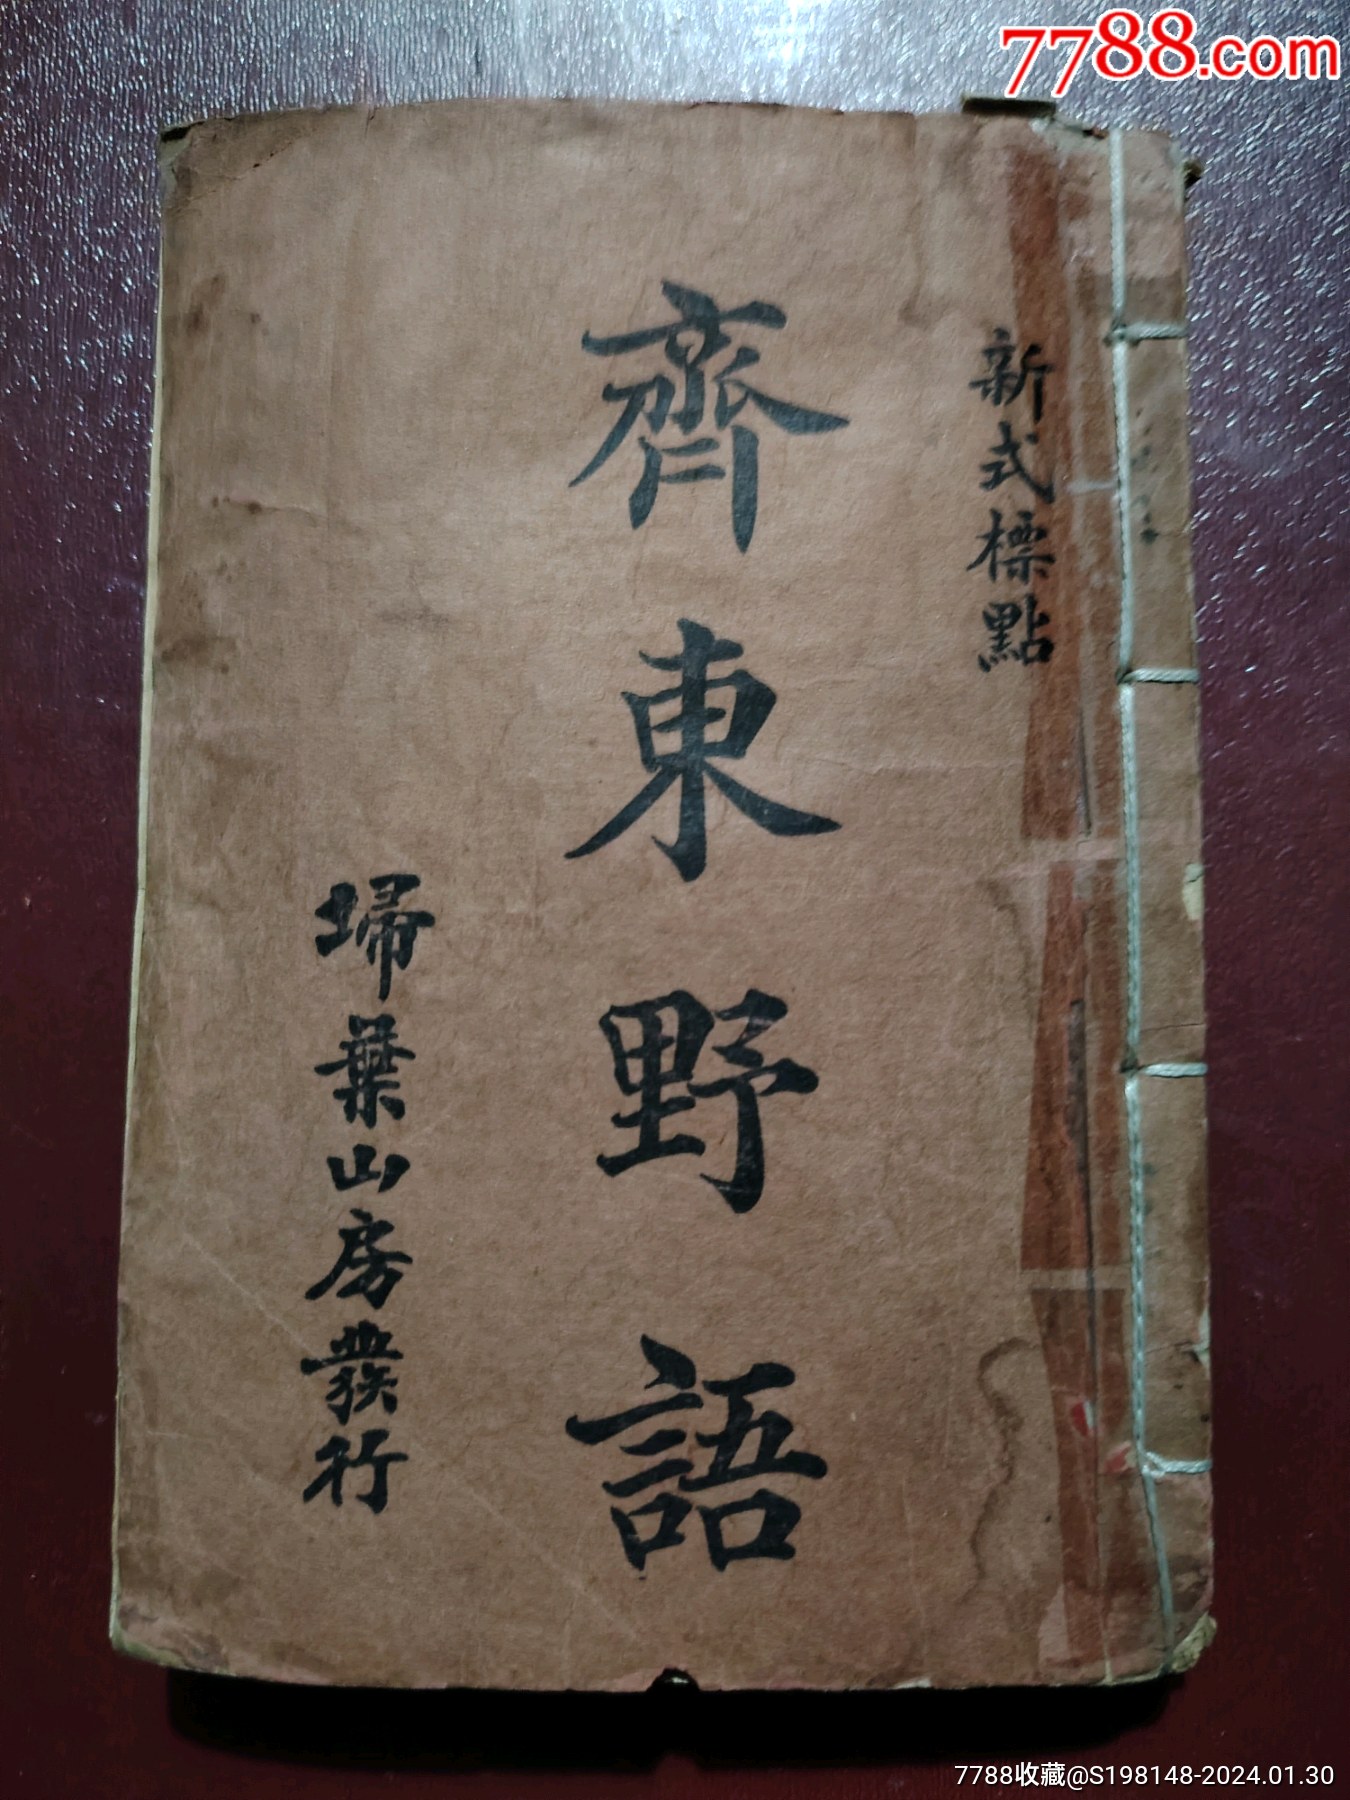 7788.com
新式標點
齊東野語
埽葉山房發行
7788收藏@S198148-2024.01.30